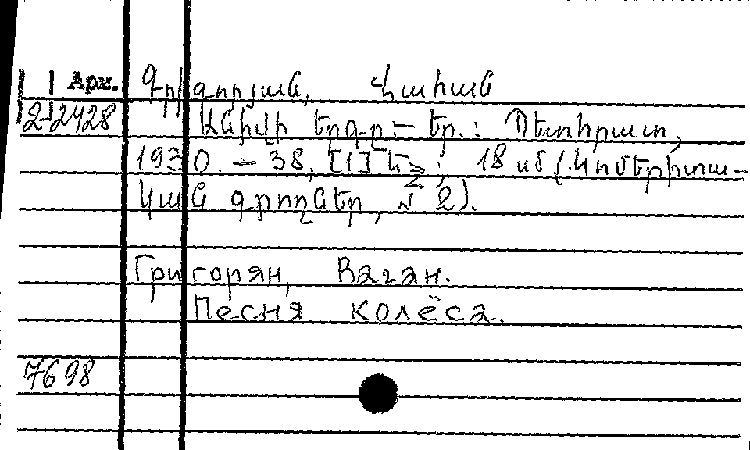 Арм.
2-2428
Գրիգորյան, Վահան
Անիվի երգը. – Եր.: Պետհրատ,
1930. – 38, [1] Էջ; 18 սմ (Կոմերիտա-
կան գրողներ, № 2).
Григорян, Ваган.
Песня колёса.
7698